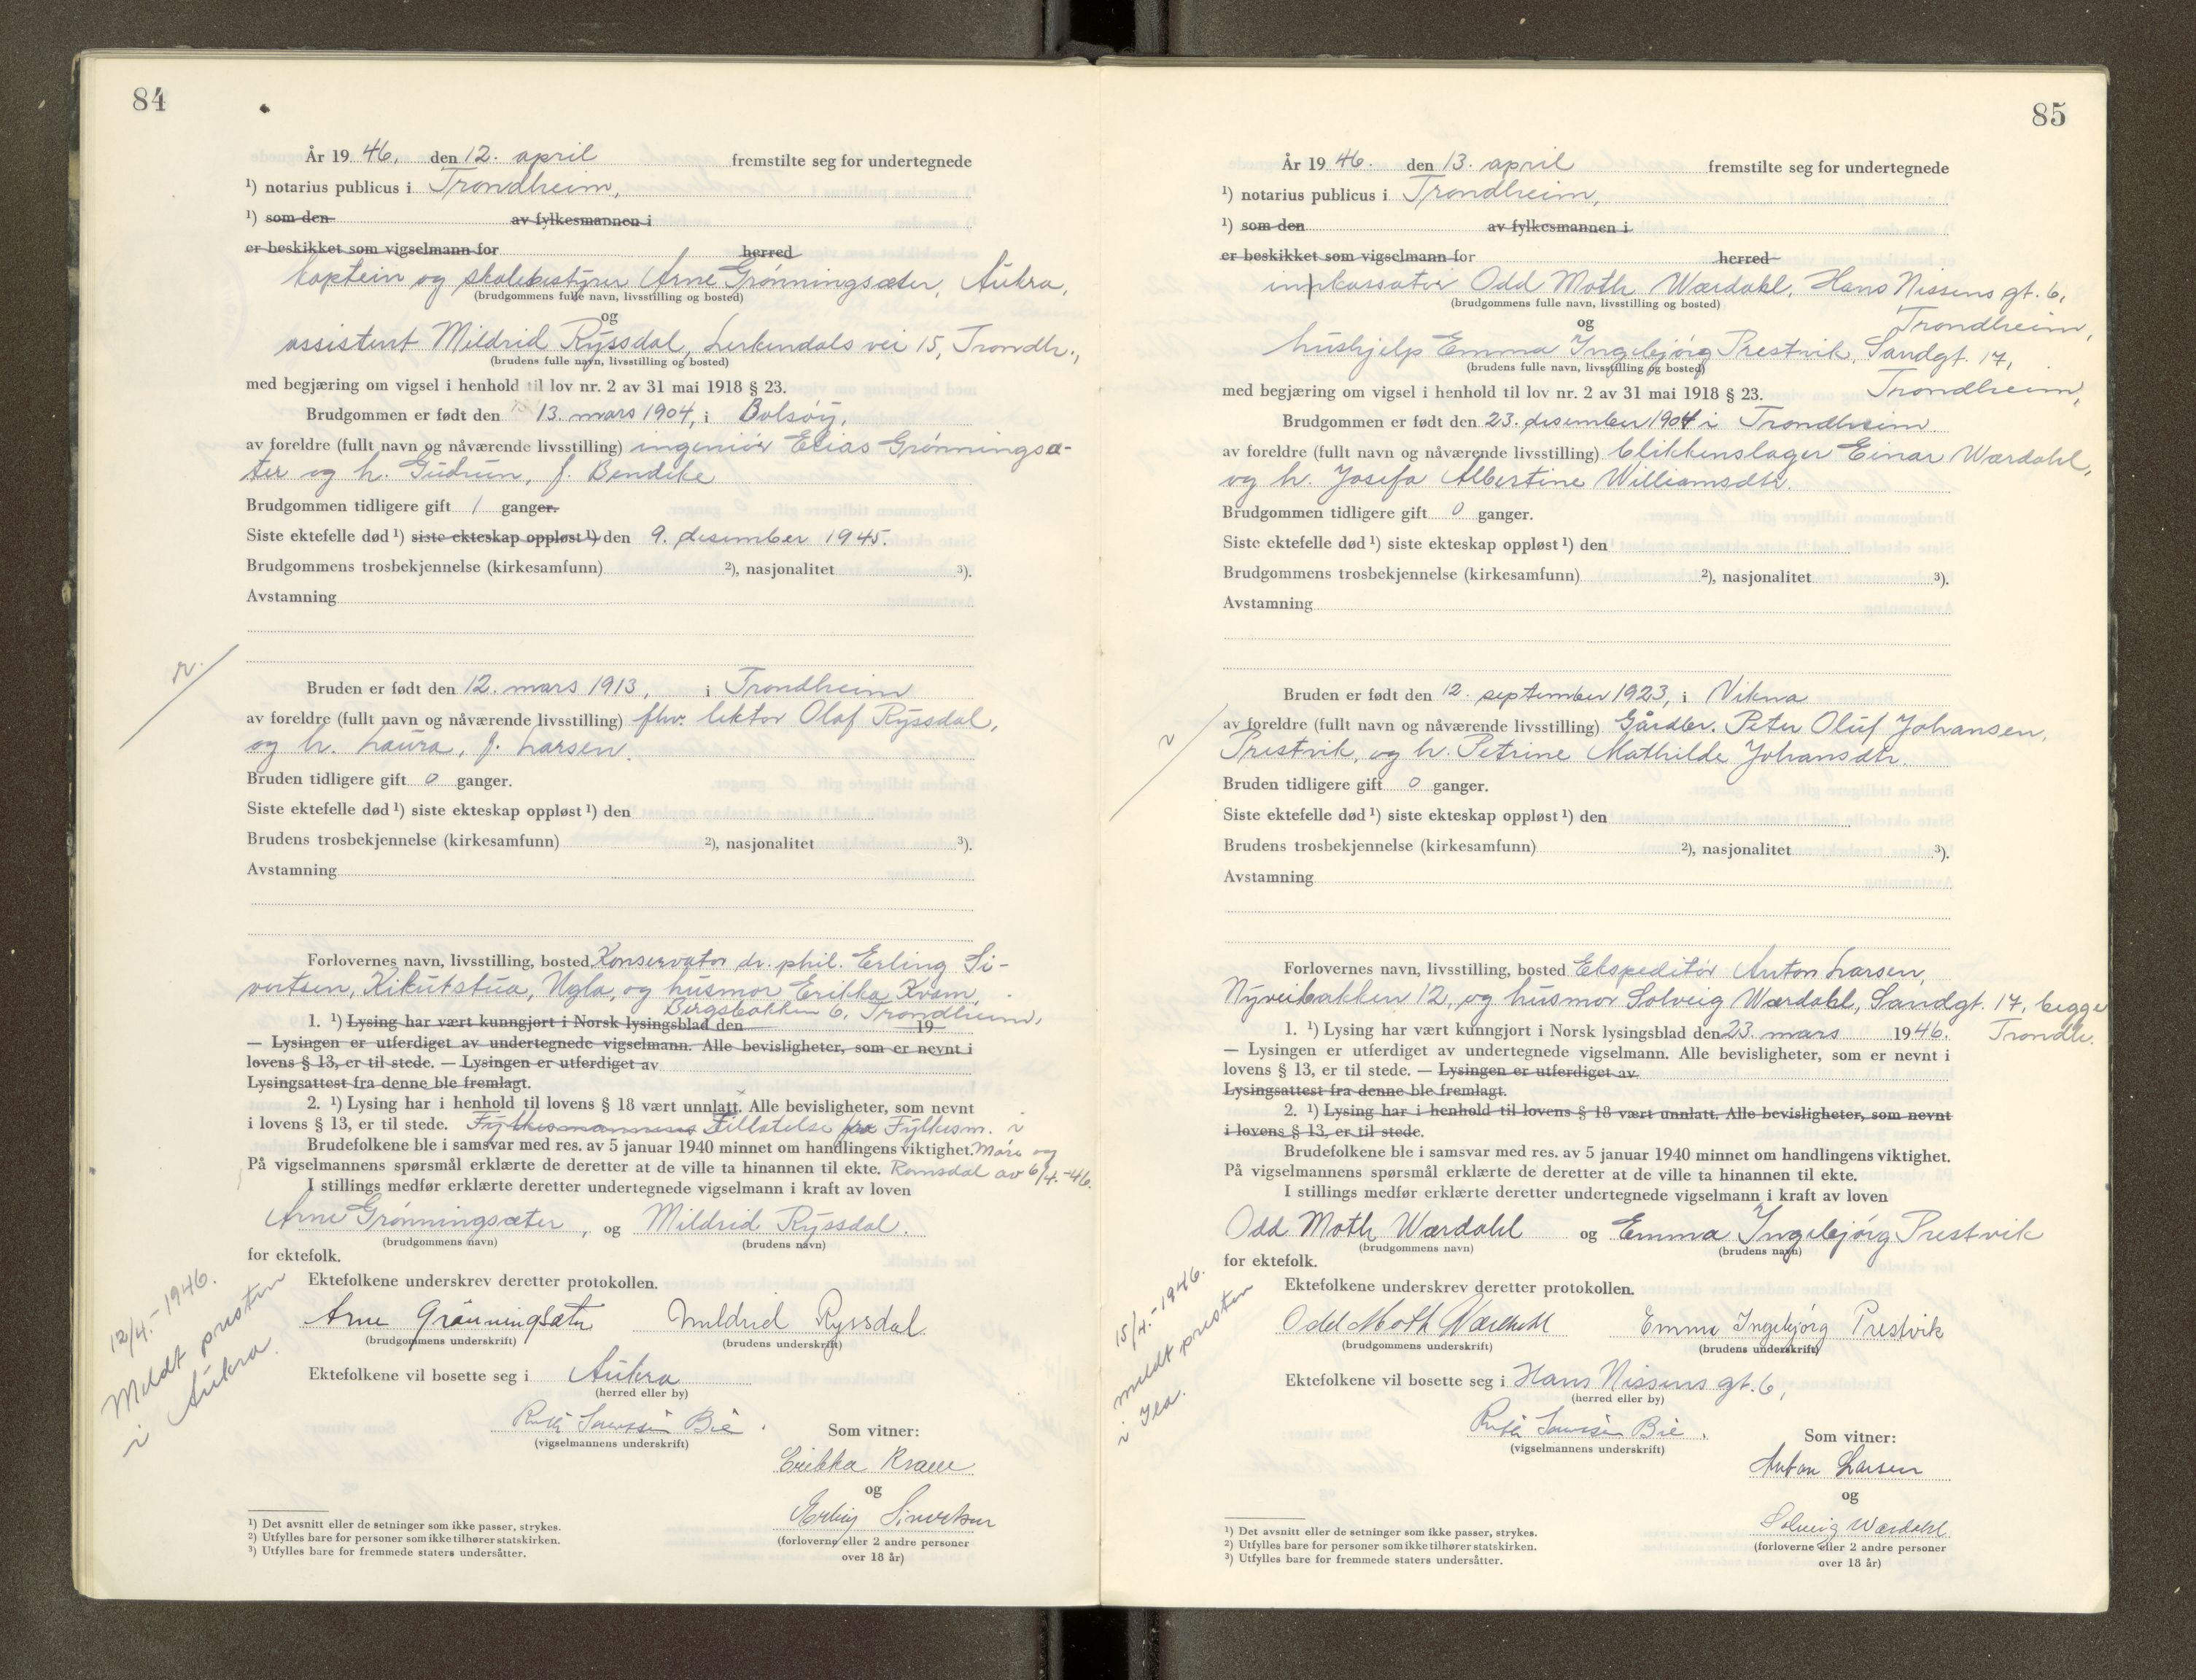 84
År 19 46, den 12. april fremstilte seg for undertegnede
¹) notarius publicus i Trondheim,
¹) som den av fylkesmannen i
er beskikket som vigselmann for herred
kaptein og skolebestyrer Arne Grønningsæter, Aukra,
(brudgommens fulle navn, livsstilling og bosted)
og
assistent Mildrid Ryssdal, Lerkendals vei 15, Trondh.,
(brudens fulle navn, livsstilling og bosted)
med begjæring om vigsel i henhold til lov nr. 2 av 31 mai 1918 § 23.
Brudgommen er født den 13. mars 1904, i Bolsøy,
av foreldre (fullt navn og nåværende livsstilling) ingeniør Elias Grønningsæ-
ter og h. Gudrun, f. Bendike
Brudgommen tidligere gift 1 ganger.
Siste ektefelle død ¹) siste ekteskap oppløst ¹) den 9. desember 1945.
Brudgommens trosbekjennelse (kirkesamfunn) ²), nasjonalitet ³).
Avstamning
Bruden er født den 12. mars 1913, i Trondheim
av foreldre (fullt navn og nåværende livsstilling) fhv. lektor Olaf Ryssdal,
og h. Laura, f. Larsen.
Bruden tidligere gift 0 ganger.
Siste ektefelle død ¹) siste ekteskap oppløst ¹) den
Brudens trosbekjennelse (kirkesamfunn) ²), nasjonalitet ³).
Avstamning
Forlovernes navn, livsstilling, bosted Konservator dr. phil. Erling Si-
vertsen, Kikutstua, Ugla, og husmor Erikka Kvam,
Bergsbakken 6, Trondheim,
1. ¹) Lysing har vært kunngjort i Norsk lysingsblad den 19
— Lysingen er utferdiget av undertegnede vigselmann. Alle bevisligheter, som er nevnt i
lovens § 13, er til stede. — Lysingen er utferdiget av
Lysingsattest fra denne ble fremlagt.
2. ¹) Lysing har i henhold til lovens § 18 vært unnlatt. Alle bevisligheter, som nevnt
i lovens § 13, er til stede. Fylkesmannens Tillatelse fra Fylkesm. i
Brudefolkene ble i samsvar med res. av 5 januar 1940 minnet om handlingens viktighet. Møre og
På vigselmannens spørsmål erklærte de deretter at de ville ta hinannen til ekte. Romsdal av 6/4.-46.
I stillings medfør erklærte deretter undertegnede vigselmann i kraft av loven
Arne Grønningsæter, og Mildrid Ryssdal.
(brudgommens navn) (brudens navn)
for ektefolk.
Ektefolkene underskrev deretter protokollen.
12/4.-1946.
Meldt presten
i Aukra.
Arne Grønningsæter Mildrid Ryssdal.
(brudgommens underskrift) (brudens underskrift)
Ektefolkene vil bosette seg i Aukra
(herred eller by)
Ruth Bie.
(vigselmannens underskrift)
Som vitner:
Erikka Kvam
og
Erling Sivertsen
(forloverne eller 2 andre personer
over 18 år)
¹) Det avsnitt eller de setninger som ikke passer, strykes.
²) Utfylles bare for personer som ikke tilhører statskirken.
³) Utfylles bare for fremmede staters undersåtter.
85
År 19 46. den 13. april fremstilte seg for undertegnede
¹) notarius publicus i Trondheim,
¹) som den av fylkesmannen i
er beskikket som vigselmann for herred
inkassator Odd Moth Wærdahl, Hans Nissens gt. 6,
(brudgommens fulle navn, livsstilling og bosted)
og Trondheim,
hushjelp Emma Ingebjørg Prestvik, Sandgt. 17,
(brudens fulle navn, livsstilling og bosted)
med begjæring om vigsel i henhold til lov nr. 2 av 31 mai 1918 § 23. Trondheim,
Brudgommen er født den 23. desember 1904 i Trondheim
av foreldre (fullt navn og nåværende livsstilling) blikkenslager Einar Wærdahl,
og h. Josefa Albertine Williamsdtr.
Brudgommen tidligere gift 0 ganger.
Siste ektefelle død ¹) siste ekteskap oppløst ¹) den
Brudgommens trosbekjennelse (kirkesamfunn) ²), nasjonalitet ³).
Avstamning
Bruden er født den 12. september 1923, i Vikna
av foreldre (fullt navn og nåværende livsstilling) Gårdbr. Peter Oluf Johansen,
Prestvik, og h. Petrine Mathilde Johansdtr.
Bruden tidligere gift 0 ganger.
Siste ektefelle død ¹) siste ekteskap oppløst ¹) den
Brudens trosbekjennelse (kirkesamfunn) ²), nasjonalitet ³).
Avstamning
Forlovernes navn, livsstilling, bosted Ekspeditør Anton Larsen,
Nyveibakken 12, og husmor Solveig Wærdahl, Sandgt. 17, begge
1. ¹) Lysing har vært kunngjort i Norsk lysingsblad den 23. mars 1946. Trondh.
— Lysingen er utferdiget av undertegnede vigselmann. Alle bevisligheter, som er nevnt i
lovens § 13, er til stede. — Lysingen er utferdiget av
Lysingsattest fra denne ble fremlagt.
2. ¹) Lysing har i henhold til lovens § 18 vært unnlatt. Alle bevisligheter, som nevnt
i lovens § 13, er til stede.
Brudefolkene ble i samsvar med res. av 5 januar 1940 minnet om handlingens viktighet.
På vigselmannens spørsmål erklærte de deretter at de ville ta hinannen til ekte.
I stillings medfør erklærte deretter undertegnede vigselmann i kraft av loven
Odd Moth Wærdahl og Emma Ingebjørg Prestvik
(brudgommens navn) (brudens navn)
for ektefolk.
Ektefolkene underskrev deretter protokollen.
15/4.-1946.
meldt presten
i Ila.
Odd Moth Wærdahl Emma Ingebjørg Prestvik
(brudgommens underskrift) (brudens underskrift)
Ektefolkene vil bosette seg i Hans Nissens gt. 6,
(herred eller by)
Ruth Bie.
(vigselmannens underskrift)
Som vitner:
Anton Larsen
og
Solveig Wærdahl
(forloverne eller 2 andre personer
over 18 år)
¹) Det avsnitt eller de setninger som ikke passer, strykes.
²) Utfylles bare for personer som ikke tilhører statskirken.
³) Utfylles bare for fremmede staters undersåtter.